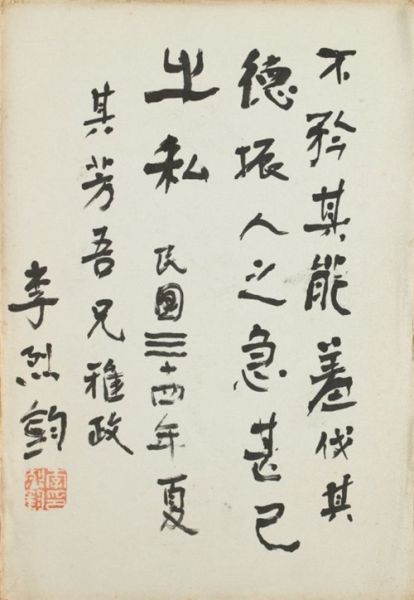 不矜其能羞伐其
德振人之急甚己
之私 民國三十四年夏
其芳吾兄雅政
李烈鈞